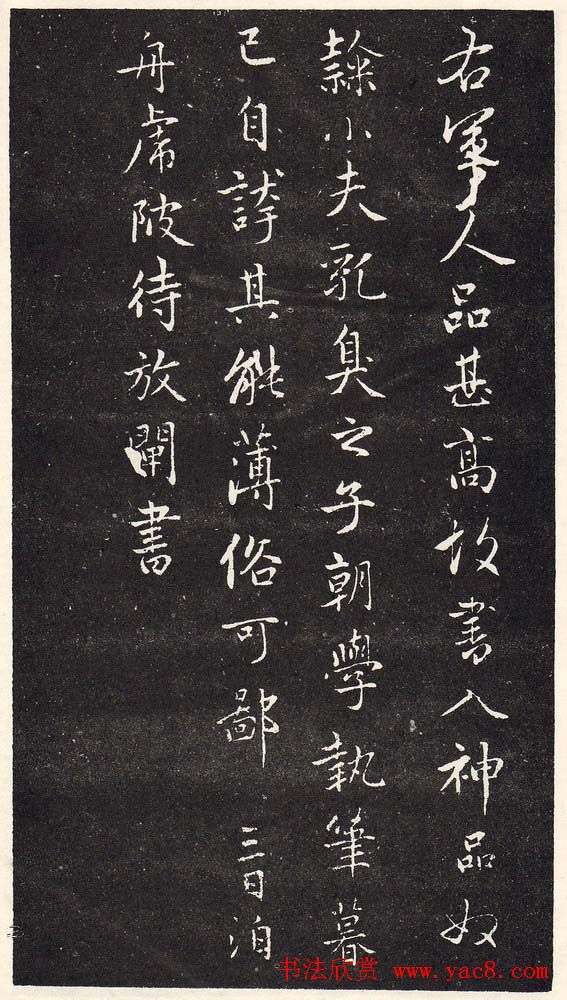 右軍人品甚高故書入神品奴
隸小夫乳臭之子朝學執筆暮
已自誇其能薄俗可鄙 三日泊
舟虎陂待放閘書
书法欣赏 www.yac8.com